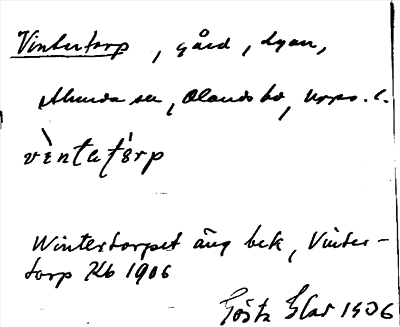 Vintertorp, gård, Lyan,
Alunda sn, Olands hd, Upps. l.
vìntətórp
Wintertorpet äng bek, Vinter-
torp Kb 1906
Gösta Elas 1906